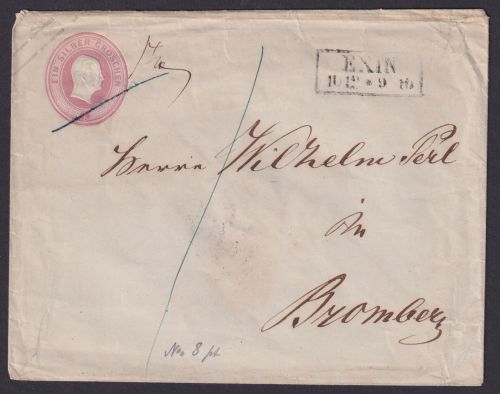 EIN SILBER GROSCHEN
EXIN
10 12 * 9 10
Herrn Wilhelm Perl
in
Bromberg
No. 8